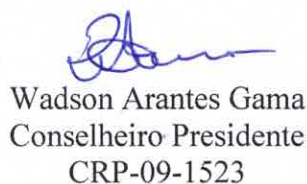 Wadson Arantes Gama
Conselheiro Presidente
CRP-09-1523